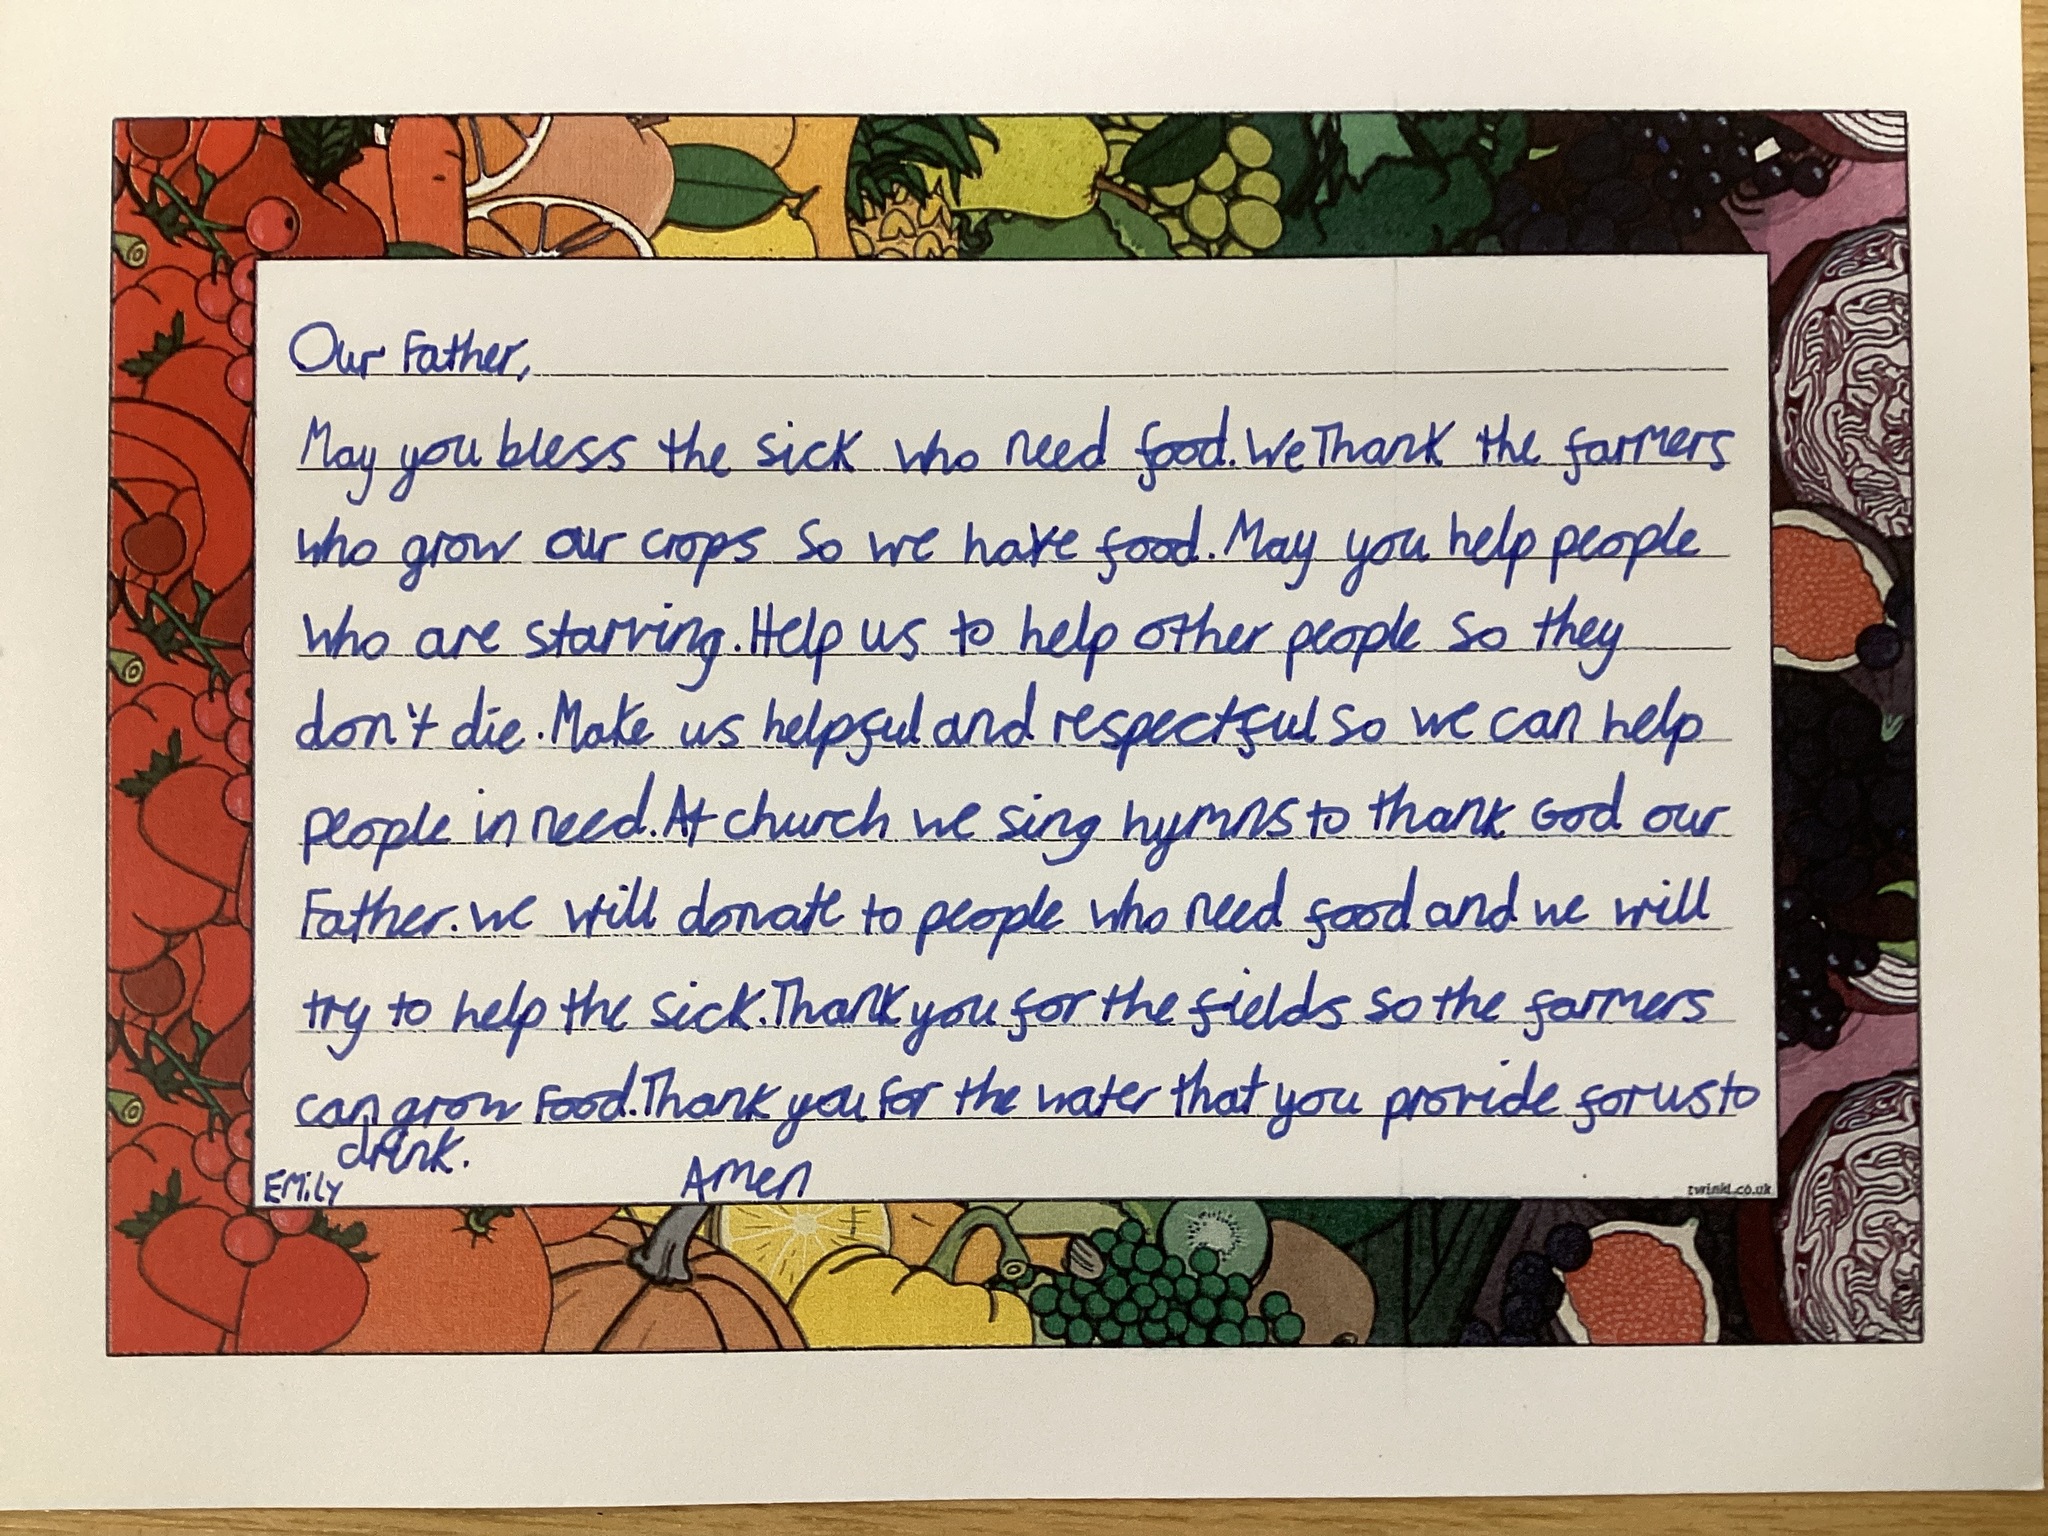 Our Father,
May you bless the sick who need food. We Thank the farmers
who grow our crops so we have food. May you help people
who are starving. Help us to help other people so they
don't die. Make us helpful and respectful so we can help
people in need. At church we sing hymns to thank God our
Father. we will donate to people who need food and we will
try to help the sick. Thank you for the fields so the farmers
can grow Food. Thank you for the water that you provide for us to
drink.
Emily Amen
twinkl.co.uk